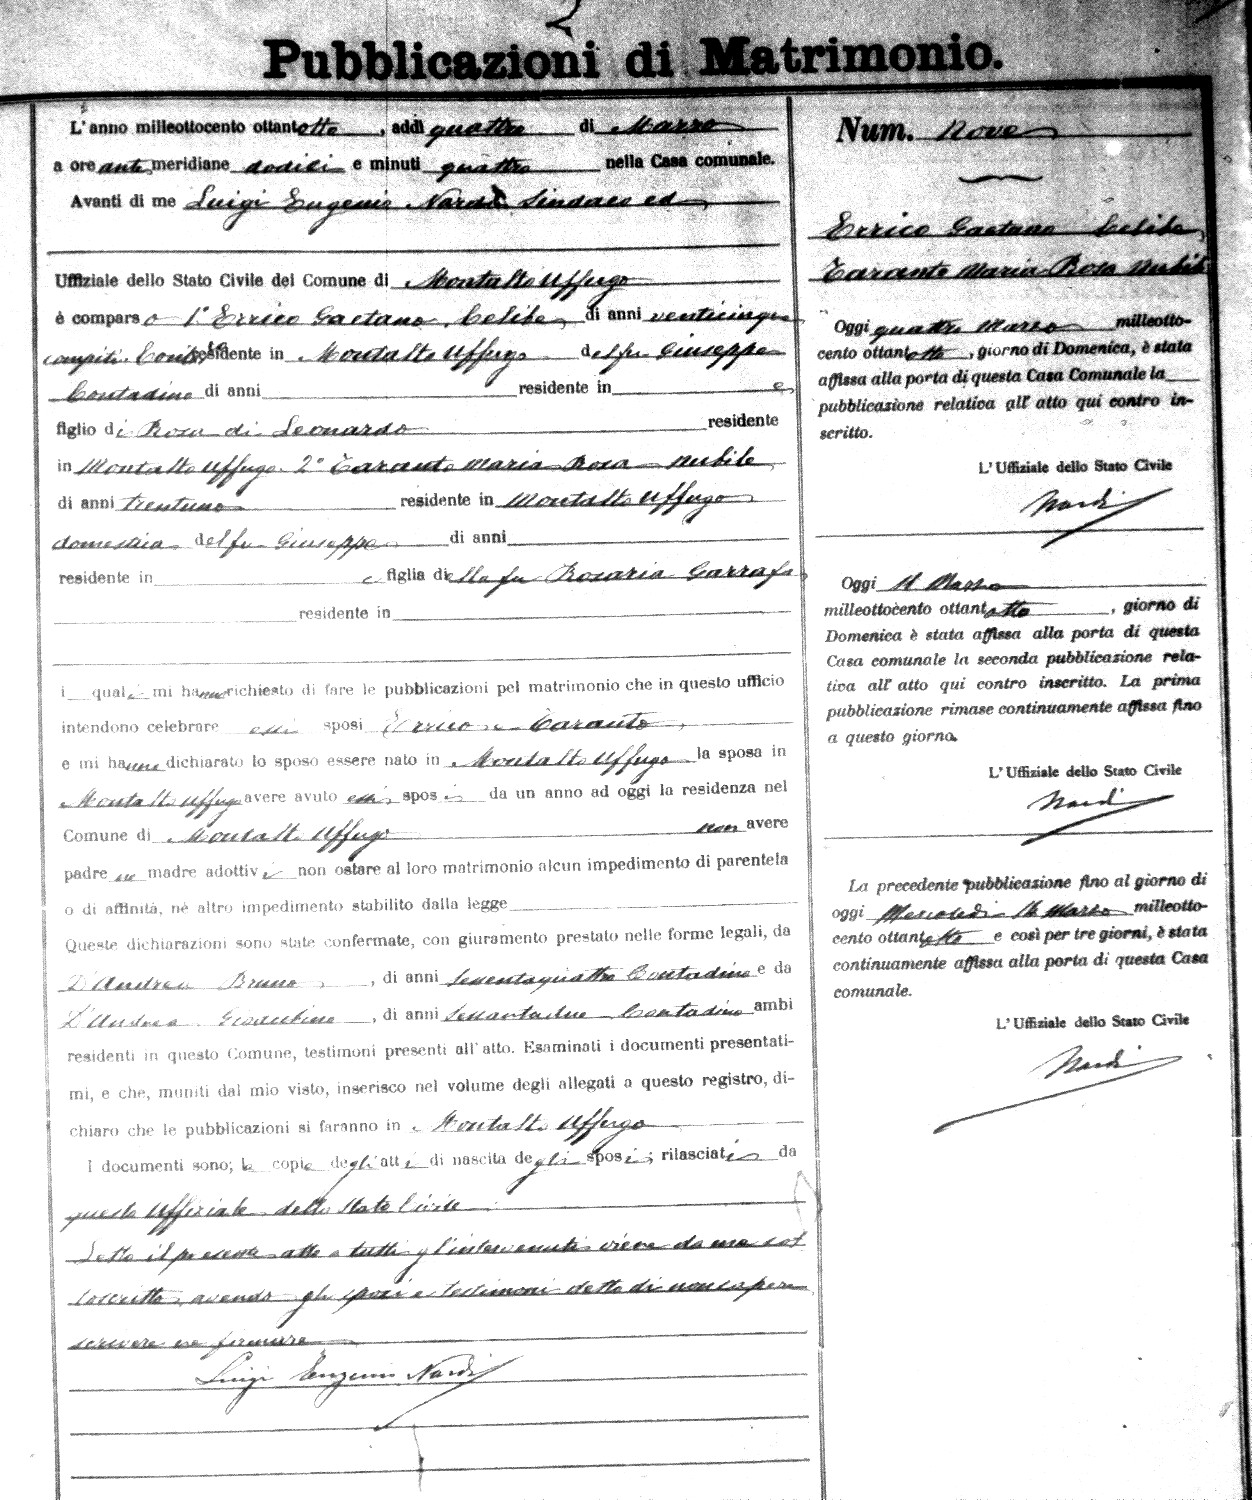 2
Pubblicazioni di Matrimonio.
L'anno milleottocento ottantotto, addì quattro di Marzo
a ore antemeridiane dodici e minuti quattro nella Casa comunale.
Avanti di me Luigi Eugenio Nardi Sindaco ed
Uffiziale dello Stato Civile del Comune di Montalto Uffugo
è comparso 1° Errico Gaetano, Celibe, di anni venticinque
compiti, residente in Montalto Uffugo del fu Giuseppe
Contadino di anni residente in e
figlio di Rosa di Leonardo residente
in Montalto Uffugo 2° Taranto Maria Rosa nubile
di anni trentuno residente in Montalto Uffugo
domestica del fu Giuseppe di anni
residente in e figlia della fu Rosaria Garrafa
residente in
i quali mi hanno richiesto di fare le pubblicazioni pel matrimonio che in questo ufficio
intendono celebrare essi sposi Errico e Taranto,
e mi hanno dichiarato lo sposo essere nato in Montalto Uffugo la sposa in
Montalto Uffugo avere avuto essi sposi da un anno ad oggi la residenza nel
Comune di Montalto Uffugo non avere
padre ne madre adottivi non ostare al loro matrimonio alcun impedimento di parentela
o di affinità, nè altro impedimento stabilito dalla legge
Queste dichiarazioni sono state confermate, con giuramento prestato nelle forme legali, da
D'Andrea Bruno, di anni Contadino e da
D'Andrea, di anni sessantadue Contadino ambi
residenti in questo Comune, testimoni presenti all'atto. Esaminati i documenti presentati-
mi, e che, muniti dal mio visto, inserisco nel volume degli allegati a questo registro, di-
chiaro che le pubblicazioni si faranno in Montalto Uffugo
I documenti sono; le copie degli atti di nascita degli sposi; rilasciati da
questo Uffiziale dello Stato Civile
Letto il presente atto a tutti gl'intervenuti viene da me sot
toscritto, avendo gli sposi e testimoni detto di non sapere
scrivere ne firmare
Luigi Eugenio Nardi
Num. Nove
Errico Gaetano Celibe,
Taranto Maria Rosa nubile
Oggi quattro Marzo milleotto-
cento ottantotto, giorno di Domenica, è stata
affissa alla porta di questa Casa Comunale la
pubblicazione relativa all'atto qui contro in-
scritto.
L'Uffiziale dello Stato Civile
Nardi
Oggi 11 Marzo
milleottocento ottantotto, giorno di
Domenica è stata affissa alla porta di questa
Casa comunale la seconda pubblicazione rela-
tiva all'atto qui contro inscritto. La prima
pubblicazione rimase continuamente affissa fino
a questo giorno.
L'Uffiziale dello Stato Civile
Nardi
La precedente pubblicazione fino al giorno di
oggi Mercoledi 14 Marzo milleotto-
cento ottantotto e così per tre giorni, è stata
continuamente affissa alla porta di questa Casa
comunale.
L'Uffiziale dello Stato Civile
Nardi